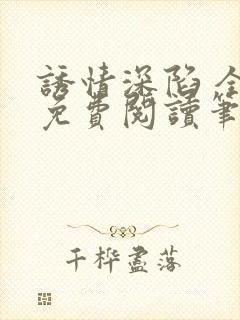 誘情深陷 全
免費閱讀筆
千樺盡落